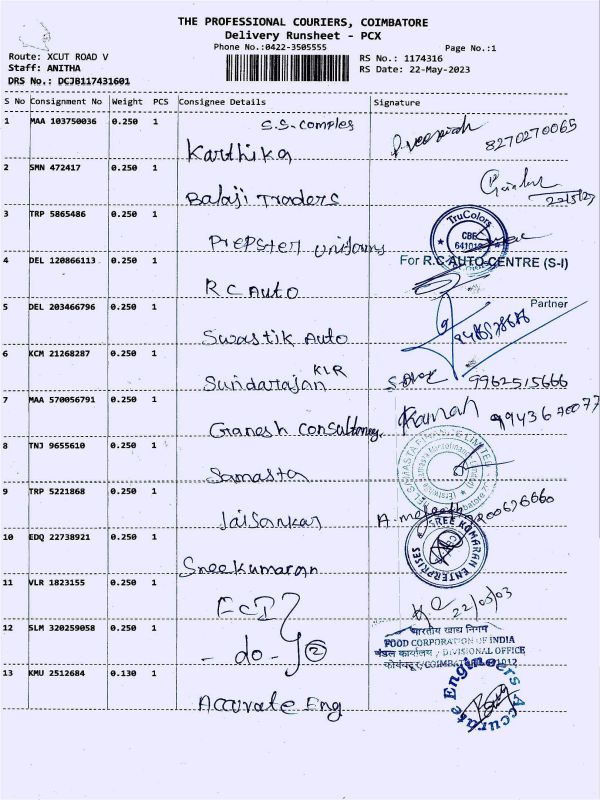 THE PROFESSIONAL COURIERS, COIMBATORE
Delivery Runsheet - PCX
Phone No.:0422-3505555 Page No.:1
Route: XCUT ROAD V RS No.: 1174316
Staff: ANITHA RS Date: 22-May-2023
DRS No.: DCJB117431601
S No Consignment No Weight PCS Consignee Details Signature
1 MAA 103750036 0.250 1 S.S. Complex
Karthika 8270270065
2 SMN 472417 0.250 1
Balaji Traders
3 TRP 5865486 0.250 1 TruColors
CBE
Prepster Uniforms
4 DEL 120866113 0.250 1 For R.C.AUTO CENTRE (S-I)
RC Auto
Partner
5 DEL 203466796 0.250 1
Swastik Auto
6 KCM 21268287 0.250 1 KLR
Sundarajan 9962515666
7 MAA 570056791 0.250 1
Ganesh Consultancy 9943670077
8 TNJ 9655610 0.250 1
Samasta
9 TRP 5221868 0.250 1
Jaisankar
10 EDQ 22738921 0.250 1 SREE KUMARAN ENTERPRISES
Sreekumaran
11 VLR 1823155 0.250 1
FCI 22/05/03
12 SLM 320259058 0.250 1 भारतीय खाद्य निगम
FOOD CORPORATION OF INDIA
- do - 2 मंडल कार्यालय / DIVISIONAL OFFICE
13 KMU 2512684 0.130 1
Accurate Eng Accurate Engineers